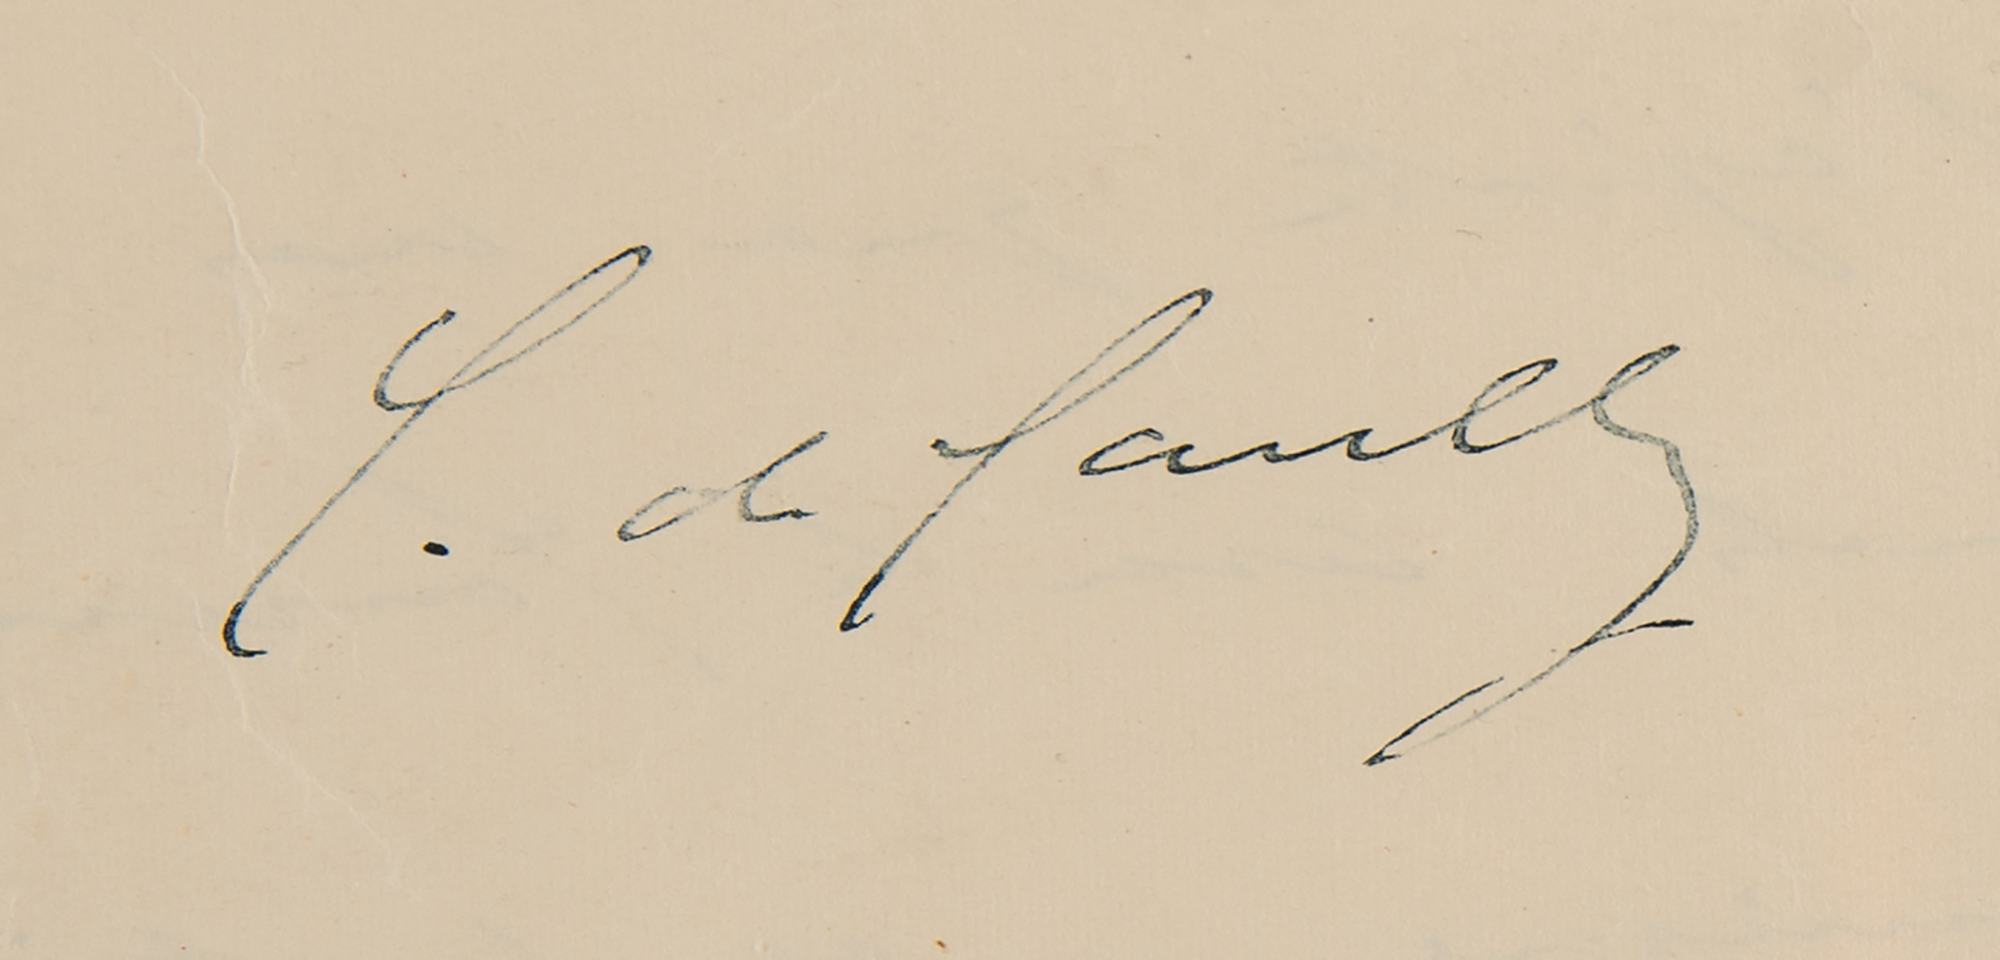 C. de Gaulle